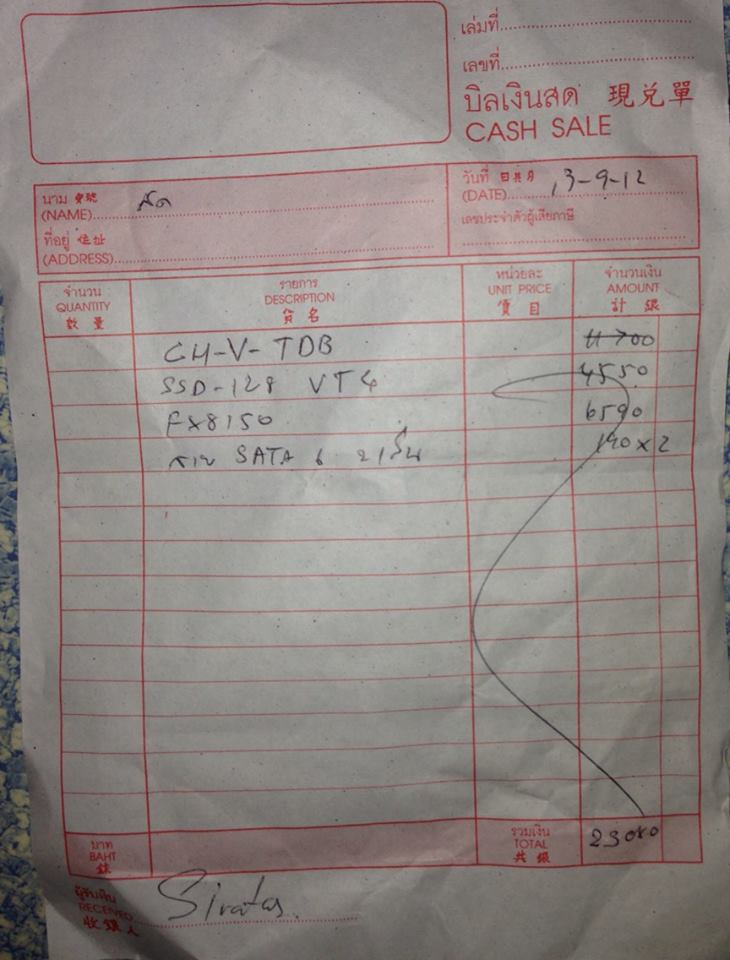 เล่มที่
เลขที่
บิลเงินสด 現兌單
CASH SALE
นาม 寶號 สด
(NAME)
วันที่ 日共月 13-9-12
(DATE)
ที่อยู่ 住址
(ADDRESS)
เลขประจำตัวผู้เสียภาษี
จำนวน รายการ หน่วยละ จำนวนเงิน
QUANTITY DESCRIPTION UNIT PRICE AMOUNT
數量 貨名 價目 計銀
CH-V-TDB 11700
SSD-128 VT4 4550
FX8150 6590
สาย SATA 6 2 เส้น 120x2
บาท รวมเงิน
BAHT TOTAL 23080
銖 共銀
ผู้รับเงิน
RECEIVED
收銀人